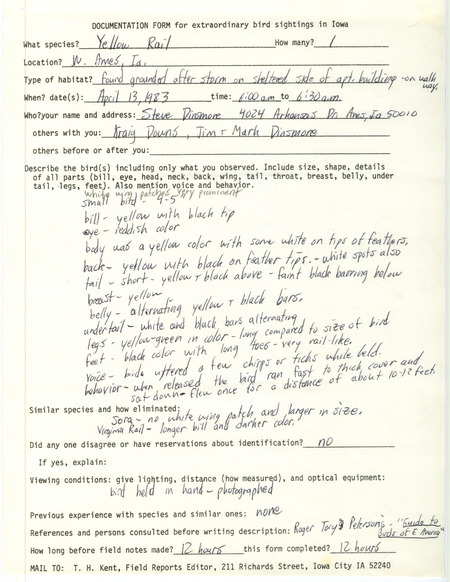 DOCUMENTATION FORM for extraordinary bird sightings in Iowa
What species? Yellow Rail How many? 1
Location? W. Ames, Ia.
Type of habitat? found grounded after storm on sheltered side of apt. building - on walk
way.
When? date(s): April 13, 1983 time: 6:00 am to 6:30 am
Who?your name and address: Steve Dinsmore 4024 Arkansas Dr. Ames, Ia 50010
others with you: Kraig Downs, Jim + Mark Dinsmore
others before or after you:
Describe the bird(s) including only what you observed. Include size, shape, details
of all parts (bill, eye, head, neck, back, wing, tail, throat, breast, belly, under
tail, legs, feet). Also mention voice and behavior.
white wing patches very prominent
small bird - 4-5"
bill - yellow with black tip
eye - reddish color
body was a yellow color with some white on tips of feathers.
back - yellow with black on feather tips. - white spots also
tail - short - yellow + black above - faint black barring below
breast - yellow
belly - alternating yellow + black bars.
undertail - white and black bars alternating
legs - yellow-green in color - long compared to size of bird
feet - black color with long toes - very rail-like.
voice - bird uttered a few chirps or ticks while held.
behavior - when released the bird ran fast to thick cover and
sat down - flew once for a distance of about 10-12 feet.
Similar species and how eliminated:
Sora - no white wing patch and larger in size.
Virginia Rail - longer bill and darker color.
Did any one disagree or have reservations about identification? no
If yes, explain:
Viewing conditions: give lighting, distance (how measured), and optical equipment:
bird held in hand - photographed
Previous experience with species and similar ones: none
References and persons consulted before writing description: Roger Tory Peterson's - "Guide to
Birds of E America"
How long before field notes made? 12 hours this form completed? 12 hours
MAIL TO: T. H. Kent, Field Reports Editor, 211 Richards Street, Iowa City IA 52240